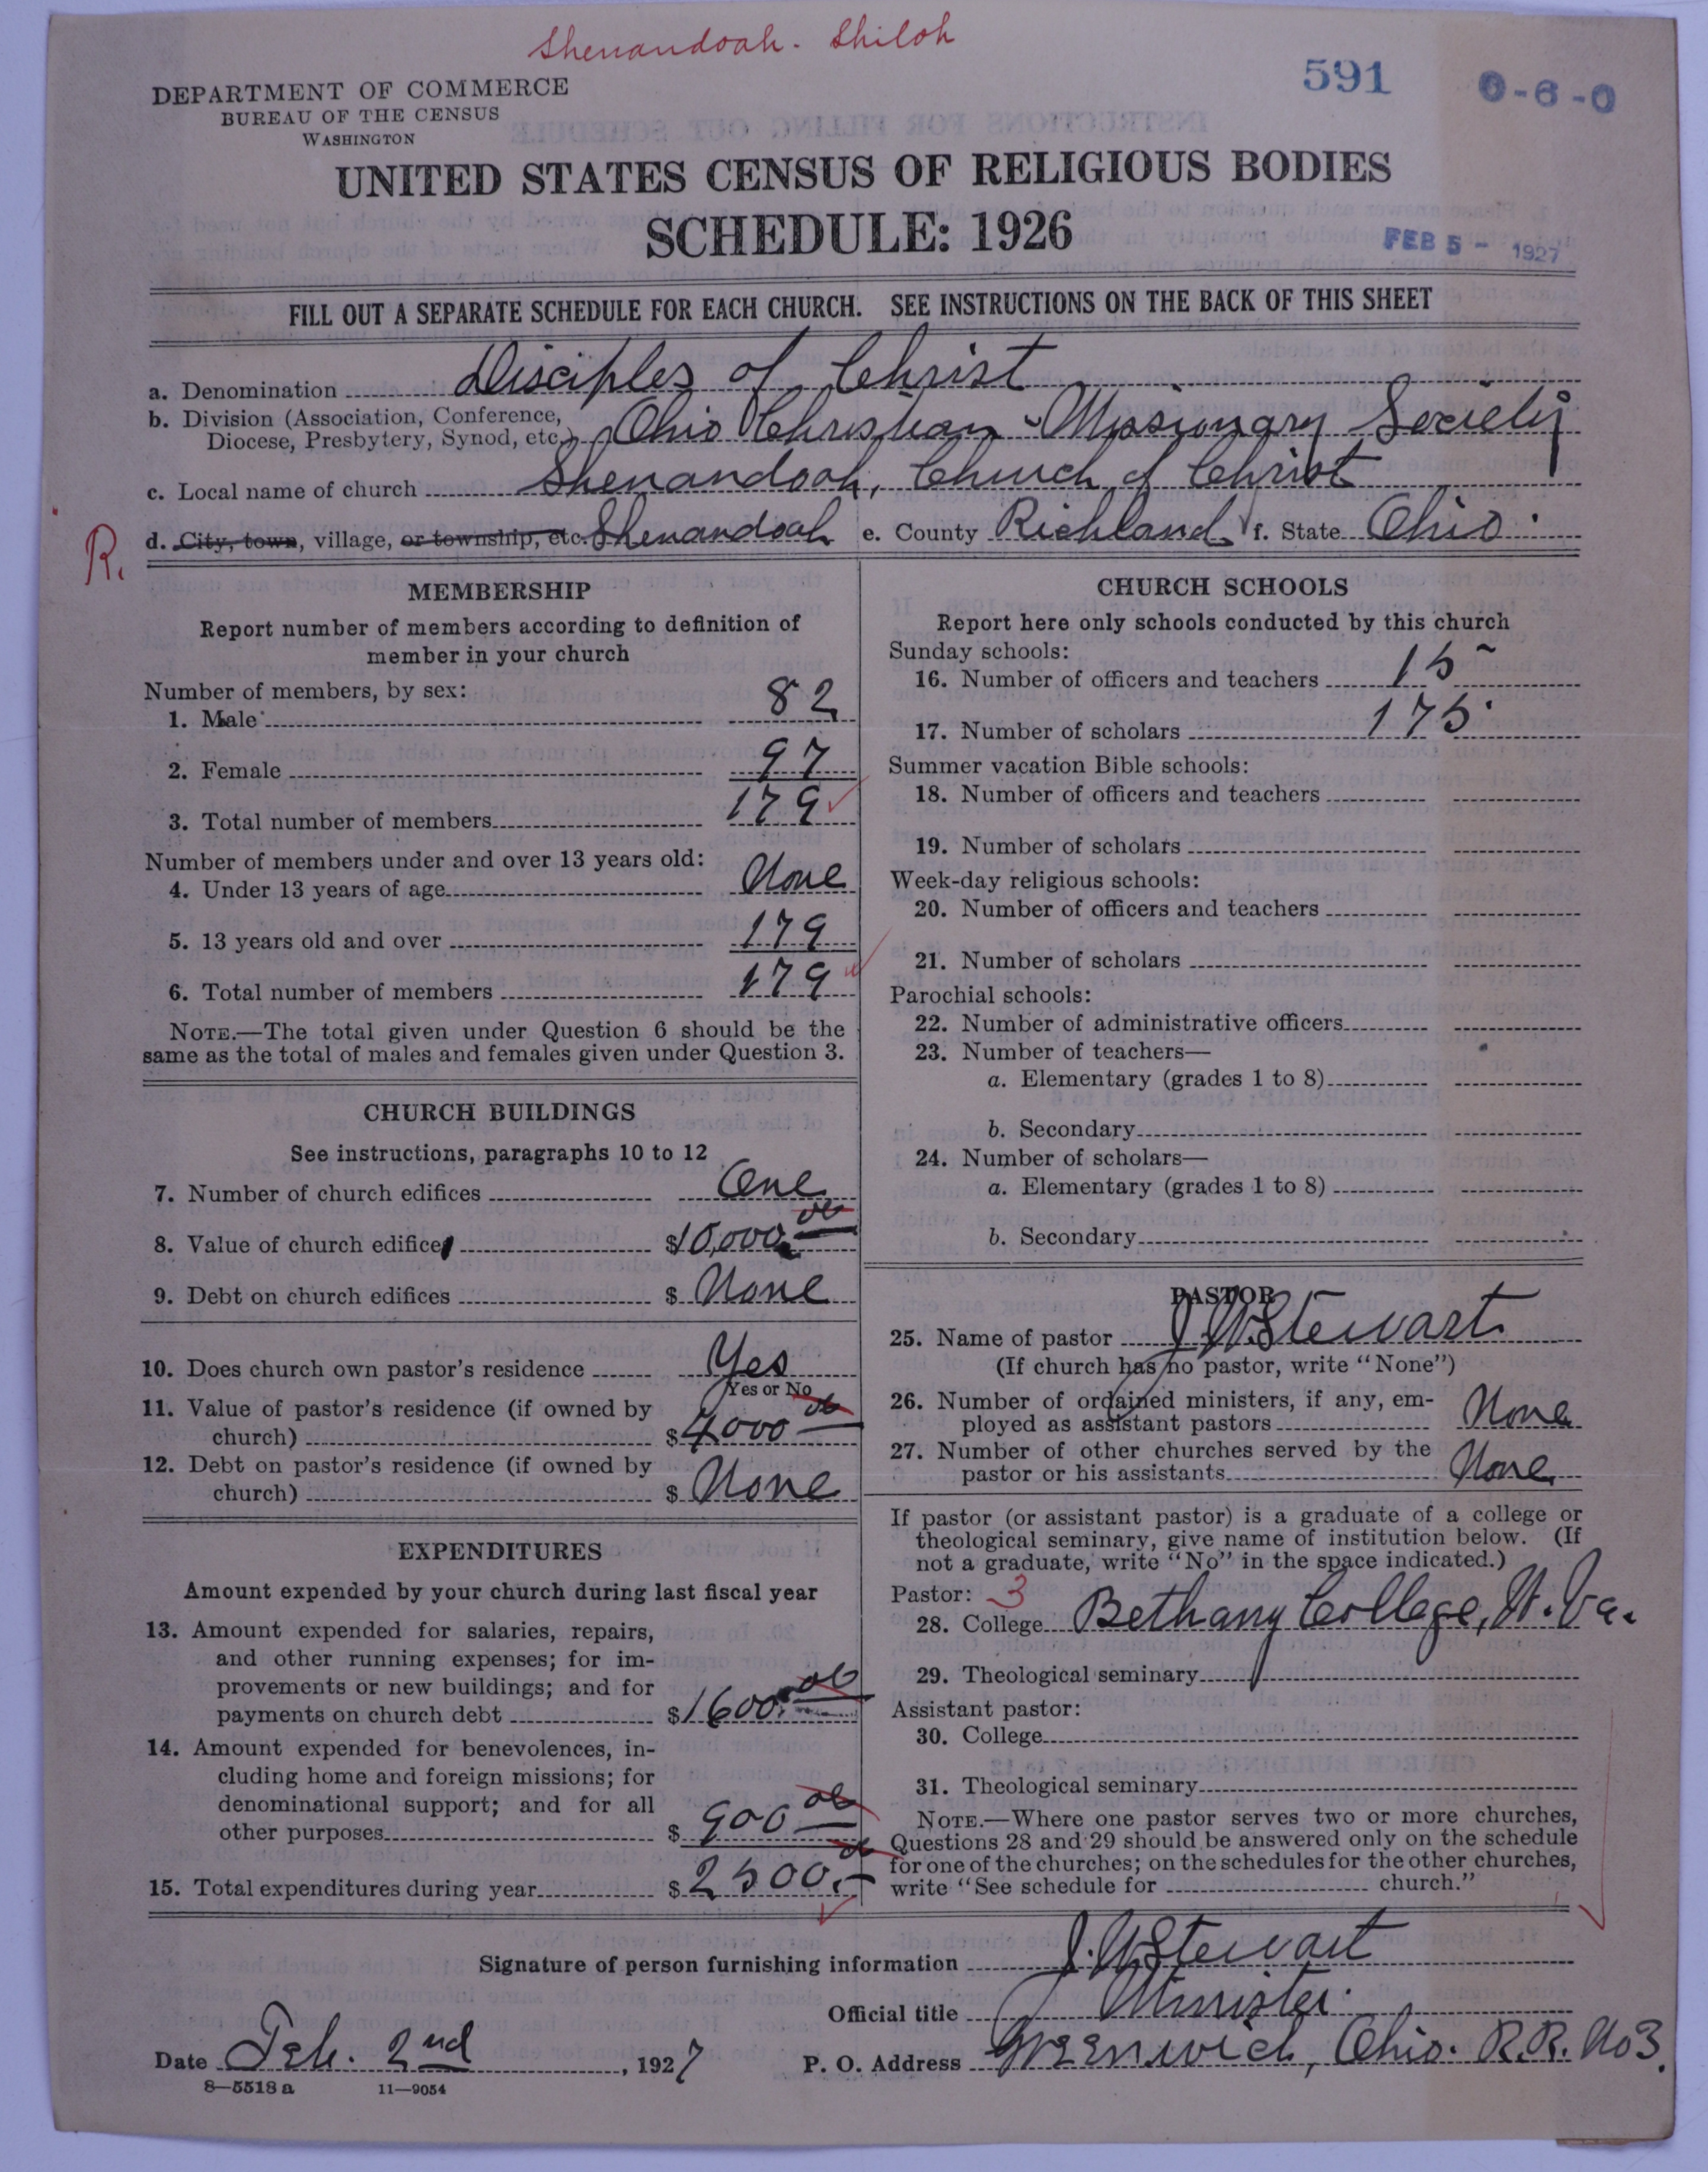 Shenandoah. Shiloh
591
0-6-0
DEPARTMENT OF COMMERCE
BUREAU OF THE CENSUS
WASHINGTON
UNITED STATES CENSUS OF RELIGIOUS BODIES
SCHEDULE: 1926
FEB 5 - 1927
FILL OUT A SEPARATE SCHEDULE FOR EACH CHURCH. SEE INSTRUCTIONS ON THE BACK OF THIS SHEET
a. Denomination Disciples of Christ
b. Division (Association, Conference,
Diocese, Presbytery, Synod, etc.) Ohio Christian Missionary Society
c. Local name of church Shenandoah, Church of Christ
R.
d. City, town, village, or township, etc. Shenandoah e. County Richland f. State Ohio
MEMBERSHIP
Report number of members according to definition of
member in your church
Number of members, by sex:
1. Male 82
2. Female 97
3. Total number of members 179
Number of members under and over 13 years old:
4. Under 13 years of age None
5. 13 years old and over 179
6. Total number of members 179
NOTE.—The total given under Question 6 should be the
same as the total of males and females given under Question 3.
CHURCH BUILDINGS
See instructions, paragraphs 10 to 12
7. Number of church edifices One
8. Value of church edifice $10,000.00
9. Debt on church edifices $ None
10. Does church own pastor's residence Yes
Yes or No
11. Value of pastor's residence (if owned by
church) $4000 00
12. Debt on pastor's residence (if owned by
church) $ None
EXPENDITURES
Amount expended by your church during last fiscal year
13. Amount expended for salaries, repairs,
and other running expenses; for im-
provements or new buildings; and for
payments on church debt $1600.00
14. Amount expended for benevolences, in-
cluding home and foreign missions; for
denominational support; and for all
other purposes $ 900 00
15. Total expenditures during year $2500.
CHURCH SCHOOLS
Report here only schools conducted by this church
Sunday schools:
16. Number of officers and teachers 15
17. Number of scholars 175
Summer vacation Bible schools:
18. Number of officers and teachers
19. Number of scholars
Week-day religious schools:
20. Number of officers and teachers
21. Number of scholars
Parochial schools:
22. Number of administrative officers
23. Number of teachers—
a. Elementary (grades 1 to 8)
b. Secondary
24. Number of scholars—
a. Elementary (grades 1 to 8)
b. Secondary
PASTOR
25. Name of pastor J. W. Stewart
(If church has no pastor, write "None")
26. Number of ordained ministers, if any, em-
ployed as assistant pastors None
27. Number of other churches served by the
pastor or his assistants None
If pastor (or assistant pastor) is a graduate of a college or
theological seminary, give name of institution below. (If
not a graduate, write "No" in the space indicated.)
Pastor: 3
28. College Bethany College, W. Va.
29. Theological seminary
Assistant pastor:
30. College
31. Theological seminary
NOTE.—Where one pastor serves two or more churches,
Questions 28 and 29 should be answered only on the schedule
for one of the churches; on the schedules for the other churches,
write "See schedule for church."
Signature of person furnishing information J. W. Stewart
Official title Minister
Date Feb. 2nd, 1927 P. O. Address Greenwich, Ohio. R.R. No 3.
8—5518 a 11—9054